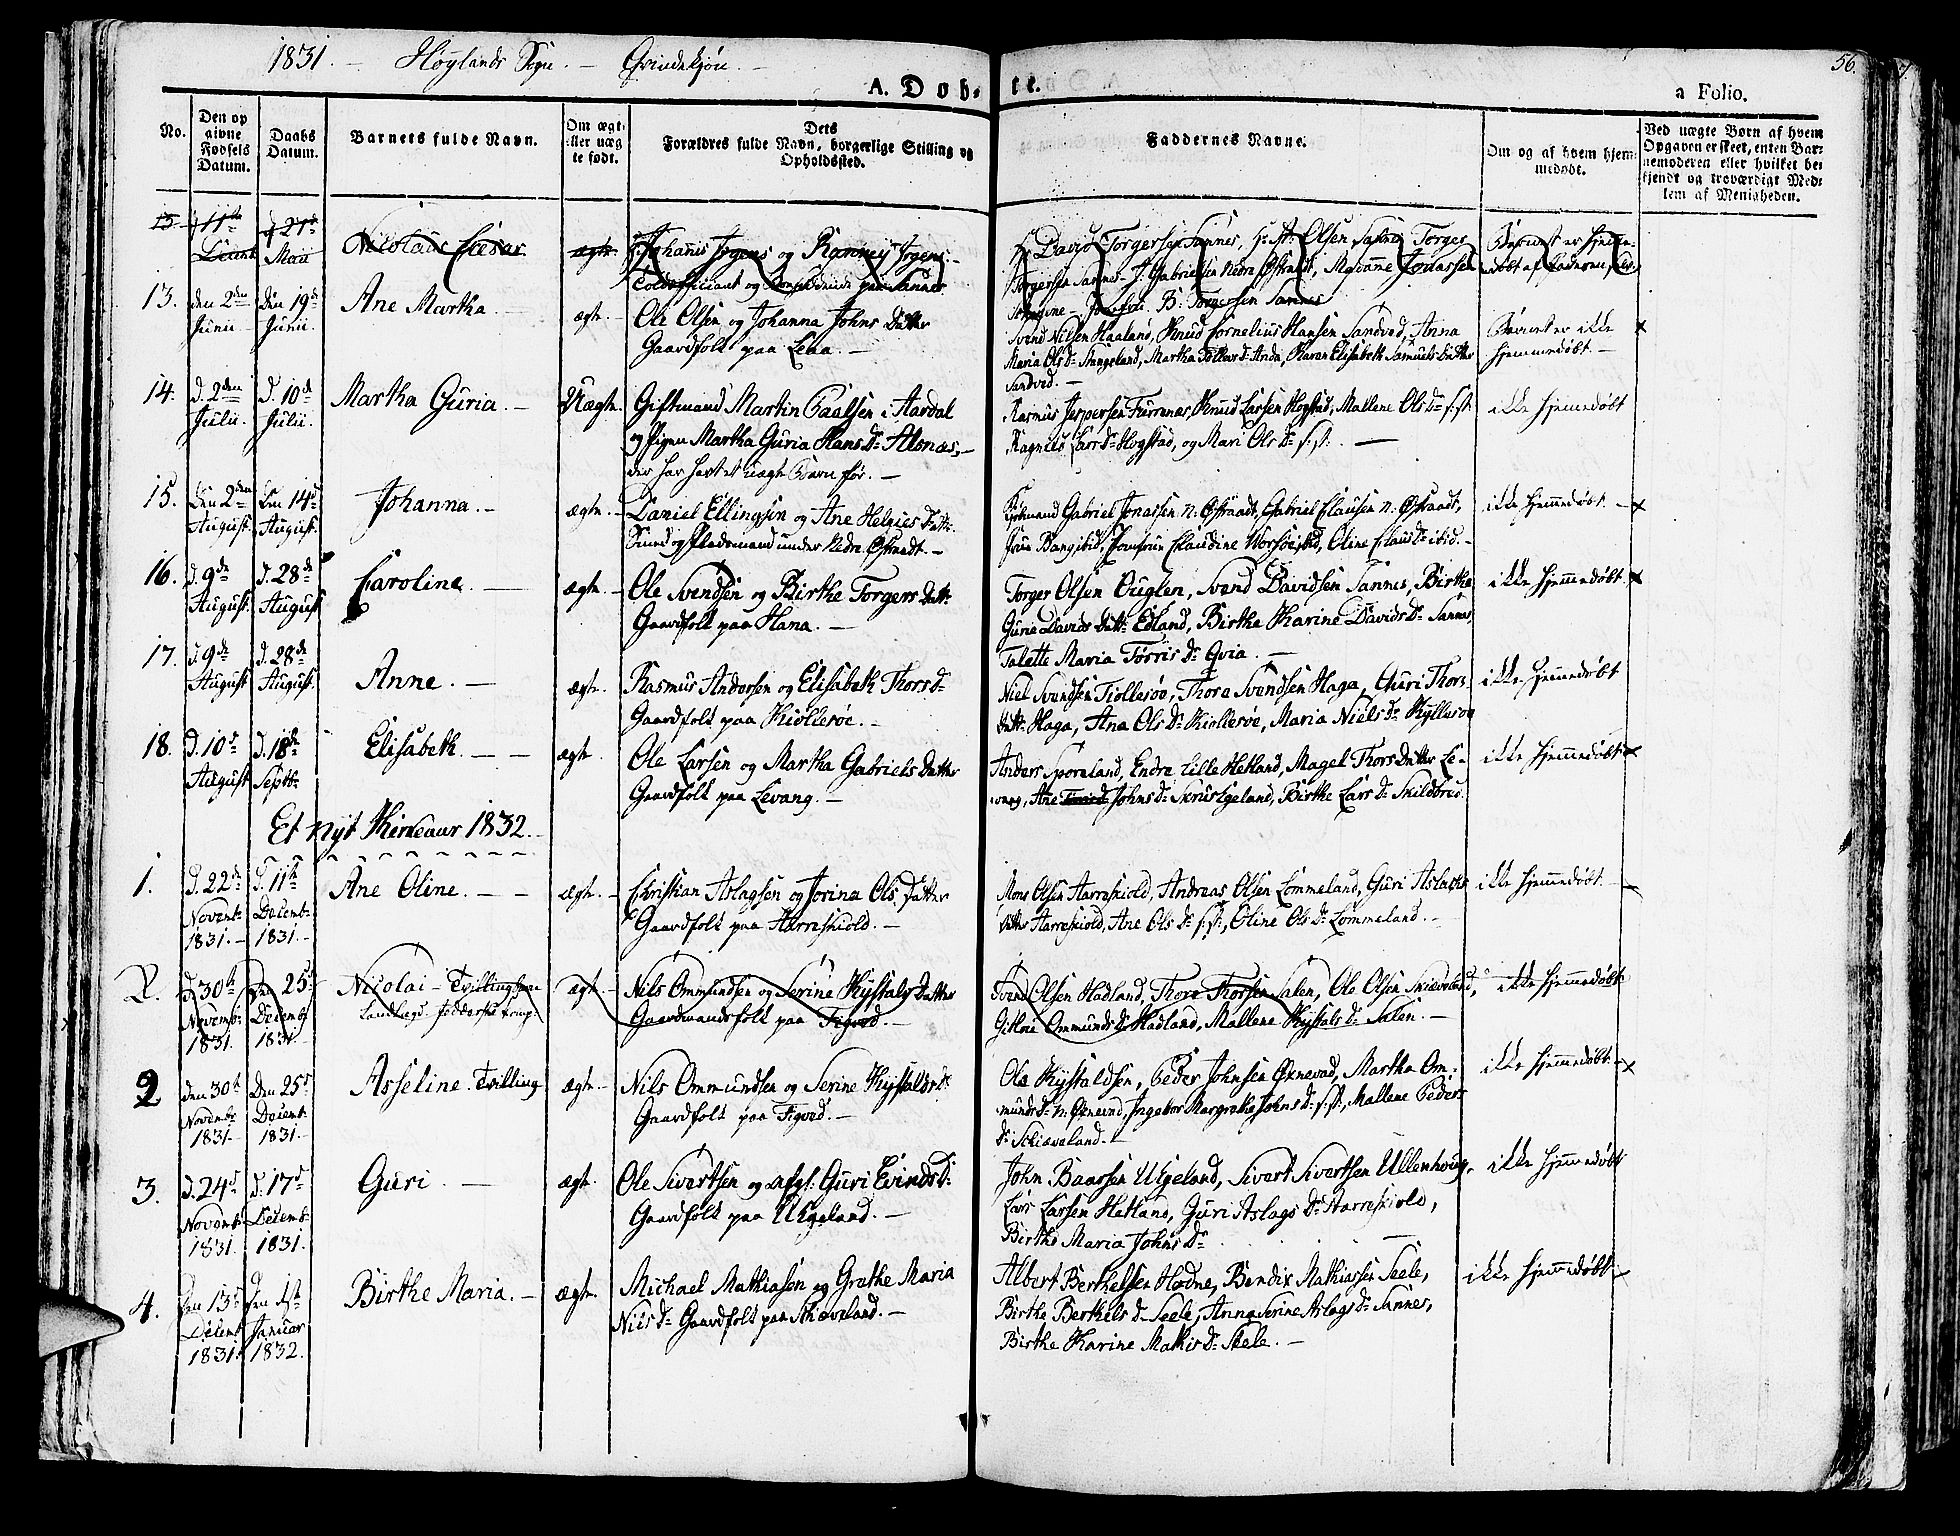 1831. – Höylands Sogn. – Qvindekjön –
56.
A. Döb- te.
a Folio.
No.
Den op givne Fødsels Datum.
Daabs Datum.
Barnets fulde Navn.
Om ægte eller uægte født.
Dets Forældres fulde Navn, borgerlige Stilling og Opholdssted.
Faddernes Navne.
Om og af hvem hjemmedøbt.
Ved uægte Børn af hvem Opgaven er skeet, enten Barnemoderen eller hvilket bekjendt og troværdigt Medlem af Menigheden.
Nicolaus Cæsar
ægte
Johannis Jrgens og
Toldofficiant og paa Sannes
David Torgersen Sannes, Olsen Sannes Torger
Torgersen Sannes J. Gabrielsen Nedre Østraadt, Marianne Jonassen
B. Torgersen Sannes
13.
den 2den Junii
Den 19de Junii.
Ane Martha –
ægte. –
Ole Olsen og Johanna Johns Datter
Gaardfolk paa Lura. –
Svend Nilsen Haaland, Knud Cornelius Hansen Sandved, Anna
Maria Ols D: Stangeland, Martha Tolleivs D: Anda, Karen Elisabeth Samuels Datter
Sandved. –
Barnet er ikke
hjemmedøbt –
x
14.
d. 2den Julii.
d. 10de Julii.
Martha Guria. –
Uægte.
Giftmand Martin Paalsen i Aardal
og Pigen Martha Guria Hans D: Alsnæs, –
der har havt et uægte Barn før. –
Rasmus Jespersen Furrenæs, Knud Larsen Hogstad, Mallene Ols D: s: st:
Ragnild Lars D: Hogstad, og Mari Ols D: s: st: –
ikke hjemmedøbt
15.
den 2den August.
den 14de August.
Johanna. –
ægte. –
Daniel Ellingsen og Ane Helgies Datt:
Smed og Pladsmand under Nedre Østraadt. –
Gabriel Jonassen N: Østraadt, Gabriel Clausen N: Østraadt,
Jomfrue Claudine ibid, Oline Claus D: ibid. –
ikke hjemmedøbt –
x
16.
d. 9de August.
d. 28de August
Caroline. –
ægte. –
Ole Svendsen og Birthe Torgers Datt:
Gaardfolk paa Hana. –
Torger Olsen Ouglen, Svend Davidsen Sannes, Birthe
Gurie Davids Datt: Edland, Birthe Karine Davids D: Sannes,
Talette Maria Tørris D: Qvia. –
ikke hjemmedøbt
x
17.
d. 9de August
d. 28de August.
Anne. –
ægte.
Rasmus Andersen og Elisabeth Thors D:
Gaardfolk paa Kiollesøe. –
Niel Svendsen Kiollesøe, Thore Svendsen Haga, Guri Thors-
Datt: Haga, Ana Ols D: Kiollesøe, Maria Niels D: Kyllesøe
ikke hjemmedøbt
18.
d. 10de August
d. 18de Septb:
Elisabeth. – –
ægte
Ole Larsen og Martha Gabriels Datter
Gaardfolk paa Levang. –
Anders Sporaland, Endre Lille Hetland, Magel Thors Datter Le-
vang, Ane Johns D: Skrus-Egeland, Birthe Lars D: Skildbred
ikke hjemmedøbt
x
Et Nyt Kirkeaar 1832.
1.
d. 22de Novemb: 1831. –
d. 11te Decemb: 1831. –
Ane Oline. – –
ægte. –
Christian Aslagsen og Jorina Ols Datter
Gaardfolk paa Harreskiold. –
Mons Olsen Harreskiold, Andreas Olsen Lommeland, Guri Aslachs
Datter Harreskiold, Ane Ols D: s: st:, Oline Ols D: Lommeland. –
ikke hjemmedøbt –
2.
d. 30te Novemb: 1831.
Den 25de Decemb: 1831.
Nicolai – Tvillingbarn
ægte. –
Nils Ommundsen og Serine Kystals Datter
Gaardmandsfolk paa Figved. –
Svend Olsen Hadland, Thore Thorsen Salen, Ole Olsen Skiæveland,
Ommunds D: Hadland, Mallene Kystals D: Salen. –
ikke hjemmedøbt
2
den 30te Novembr 1831. –
Den 25de Decemb: 1831. –
Asseline. Tvilling
ægte –
Nils Ommundsen og Serine Kystalds D:
Gaardfolk paa Figved. –
Ole Kystaldsen, Peder Johnsen Øxnevad, Martha Om-
munds D: N: Øxnevad, Ingebor Margrethe Johns D: s: st:, Mallene Peders
D: Skiæveland. –
ikke hjemmedøbt –
x
3.
d. 24de Novemb: 1831.
d. 17de Decemb: 1831.
Guri –
ægte.
Ole Sivertsen og Guri Evinds D:
Gaardfolk paa Uegeland. –
John Baarsen Uegeland, Sivert Sivertsen Ullenhoug,
Lars Larsen Hetland, Guri Aslags D: Harreskiold,
Birthe Maria Johns D: –
ikke hjemmedøbt
4.
Den 13de Decemb 1831.
Den 1ste Januar 1832.
Birthe Maria. –
ægte.
Michael Mathiasen og Grethe Maria
Niels D: Gaardfolk paa Skiæveland. –
Albert Berthelsen Hodne, Bendix Mathiassen Seele,
Birthe Berthels D: Seele, Anna Serine Aslags D: Sannes,
Birthe Karine Mathis D: Seele. –
ikke hjemmedøbt –